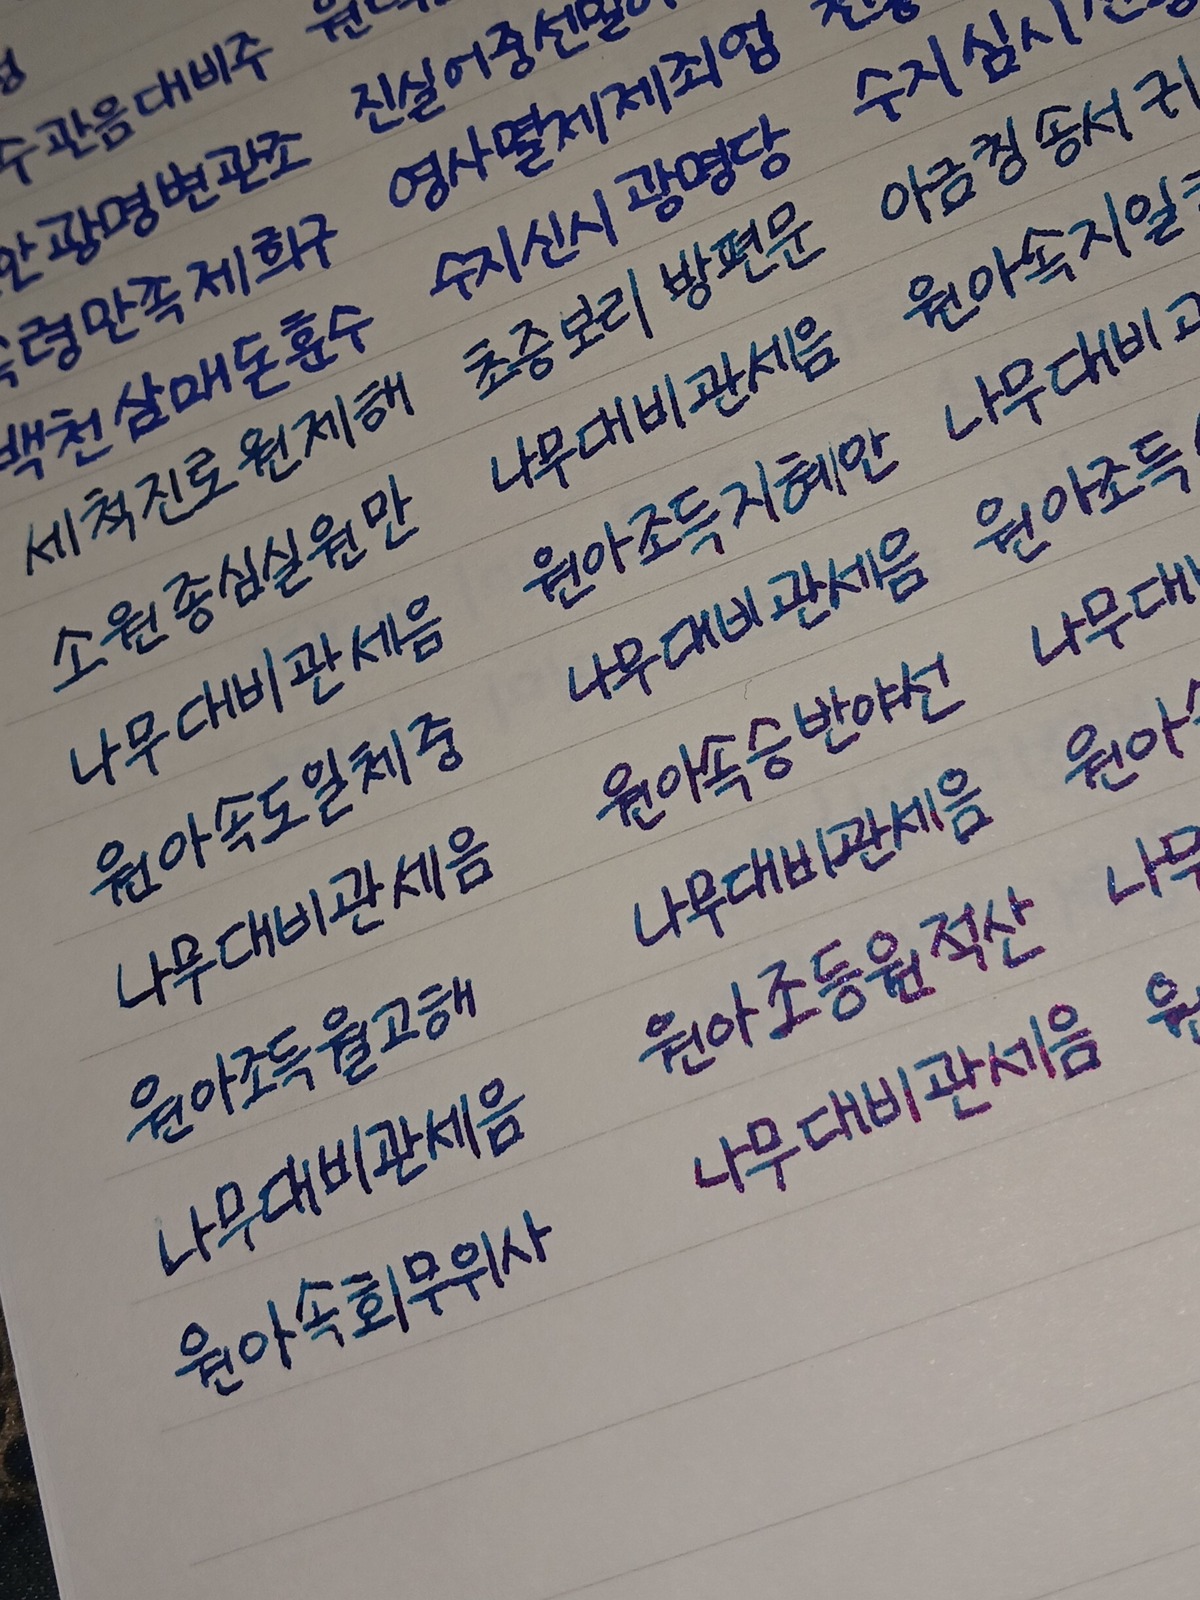 수관음대비주
안광명변관조 진실어중선밀어
속령만족제희구 영사멸제제죄업
백천삼매돈훈수 수지신시광명당 수지심시신통
세척진로원제해 초증보리방편문 아금칭송서귀
소원종심실원만 나무대비관세음 원아속지일
나무대비관세음 원아조득지혜안 나무대비관
원아속도일체중 나무대비관세음 원아조득
나무대비관세음 원아속승반야선 나무대비
원아조득월고해 나무대비관세음 원아속
나무대비관세음 원아조동원적산 나무
원아속회무위사 나무대비관세음 원